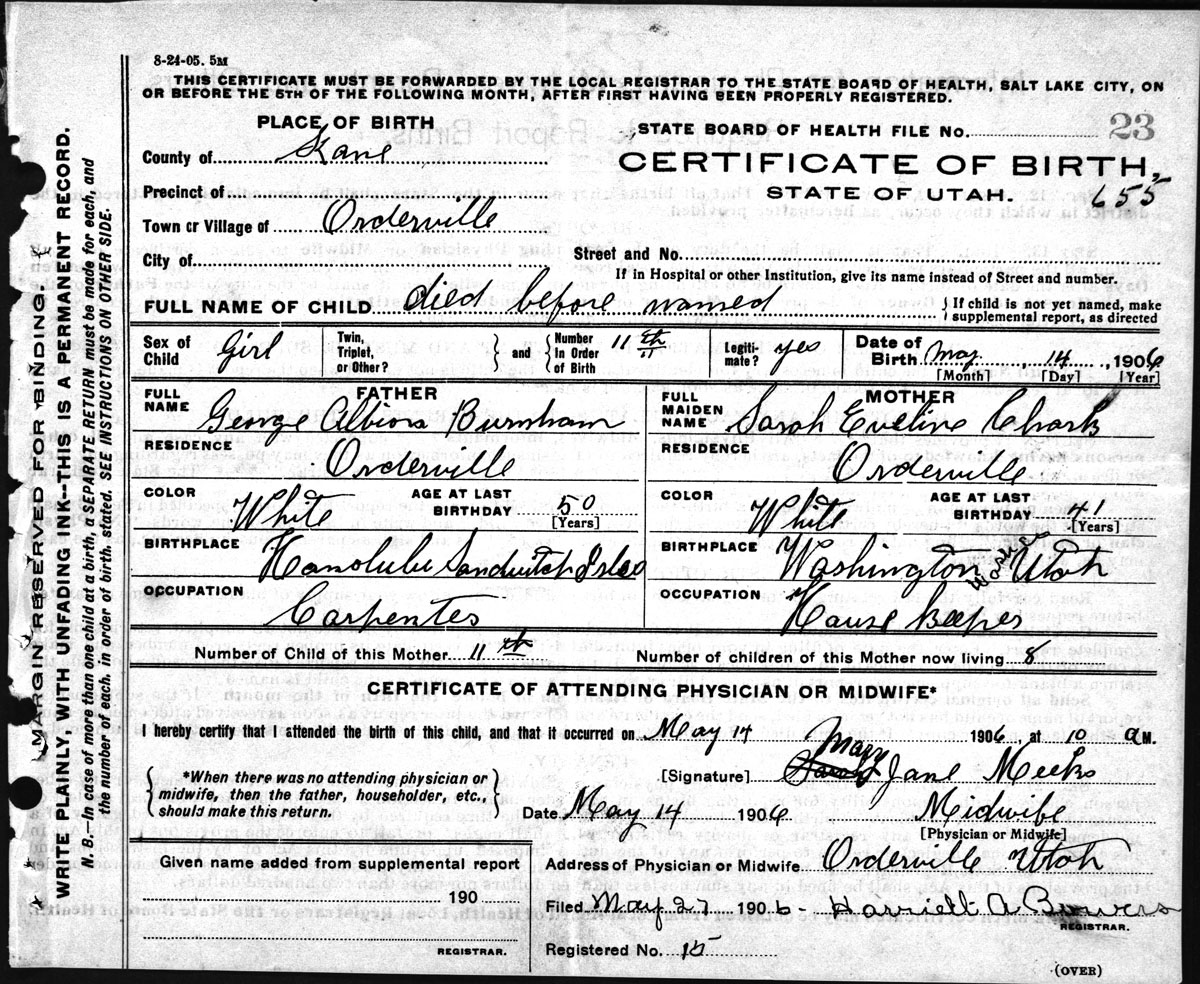 8-24-05. 5M
THIS CERTIFICATE MUST BE FORWARDED BY THE LOCAL REGISTRAR TO THE STATE BOARD OF HEALTH, SALT LAKE CITY, ON
OR BEFORE THE 5TH OF THE FOLLOWING MONTH, AFTER FIRST HAVING BEEN PROPERLY REGISTERED.
PLACE OF BIRTH
STATE BOARD OF HEALTH FILE NO. 23
County of Kane
CERTIFICATE OF BIRTH,
Precinct of
STATE OF UTAH. 655
Town or Village of Orderville
City of
Street and No.
If in Hospital or other Institution, give its name instead of Street and number.
FULL NAME OF CHILD died before named
{ If child is not yet named, make
supplemental report, as directed
Sex of Child Girl
Twin, Triplet, or Other? } and { Number In Order of Birth 11th
Legiti-mate? yes
Date of Birth May 14, 1906
[Month] [Day] [Year]
FATHER
FULL NAME George Albion Burnham
RESIDENCE Orderville
COLOR White
AGE AT LAST BIRTHDAY 50
[Years]
BIRTHPLACE Honolulu Sandwitch Isles
OCCUPATION Carpenter
MOTHER
FULL MAIDEN NAME Sarah Eveline Clark
RESIDENCE Orderville
COLOR White
AGE AT LAST BIRTHDAY 41
[Years]
BIRTHPLACE Washington Utah
OCCUPATION House Keeper
Number of Child of this Mother 11th
Number of children of this Mother now living 8
CERTIFICATE OF ATTENDING PHYSICIAN OR MIDWIFE*
I hereby certify that I attended the birth of this child, and that it occurred on May 14 1906, at 10 a M.
{ *When there was no attending physician or
midwife, then the father, householder, etc.,
should make this return. }
[Signature] Mary Jane Meeks
Date May 14 1906. Midwife
[Physician or Midwife]
Given name added from supplemental report
190
REGISTRAR.
Address of Physician or Midwife Orderville Utah
Filed May 27 1906 Harriett A Bowers
REGISTRAR.
Registered No. 15
(OVER)
MARGIN RESERVED FOR BINDING
WRITE PLAINLY, WITH UNFADING INK--THIS IS A PERMANENT RECORD.
N. B.--In case of more than one child at a birth, a SEPARATE RETURN must be made for each, and
the number of each, in order of birth, stated. SEE INSTRUCTIONS ON OTHER SIDE.